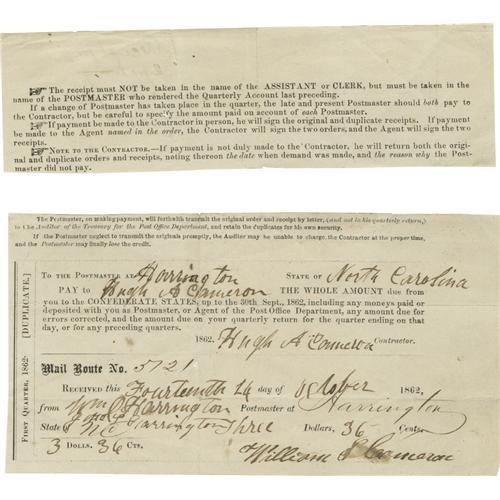 ☞ The receipt must NOT be taken in the name of the ASSISTANT or CLERK, but must be taken in the
name of the POSTMASTER who rendered the Quarterly Account last preceding.
If a change of Postmaster has taken place in the quarter, the late and present Postmaster should both pay to
the Contractor, but be careful to specify the amount paid on account of each Postmaster.
☞ If payment be made to the Contractor in person, he will sign the original and duplicate receipts. If payment
be made to the Agent named in the order, the Contractor will sign the two orders, and the Agent will sign the two
receipts.
☞ NOTE TO THE CONTRACTOR.—If payment is not duly made to the Contractor, he will return both the origi-
nal and duplicate orders and receipts, noting thereon the date when demand was made, and the reason why the Post-
master did not pay.
The Postmaster, on making payment, will forthwith transmit the original order and receipt by letter, (and not in his quarterly return,)
to the Auditor of the Treasury for the Post Office Department, and retain the duplicates for his own security.
If the Postmaster neglect to transmit the originals promptly, the Auditor may be unable to charge the Contractor at the proper time,
and the Postmaster may finally lose the credit.
FIRST QUARTER, 1862. [DUPLICATE.]
TO THE POSTMASTER AT Harrington STATE OF North Carolina
PAY TO Hugh A Cameron THE WHOLE AMOUNT due from
you to the CONFEDERATE STATES, up to the 30th Sept., 1862, including any moneys paid or
deposited with you as Postmaster, or Agent of the Post Office Department, any amount due for
errors corrected, and the amount due on your quarterly return for the quarter ending on that
day, or for any preceding quarters.
1862. Hugh A Cameron Contractor.
Mail Route No. 5121
RECEIVED this Fourteenth day of October 1862,
from Harrington Postmaster at Harrington
State Harrington Three Dollars, 36 Cents
3 DOLLS. 36 CTS.
William Cameron